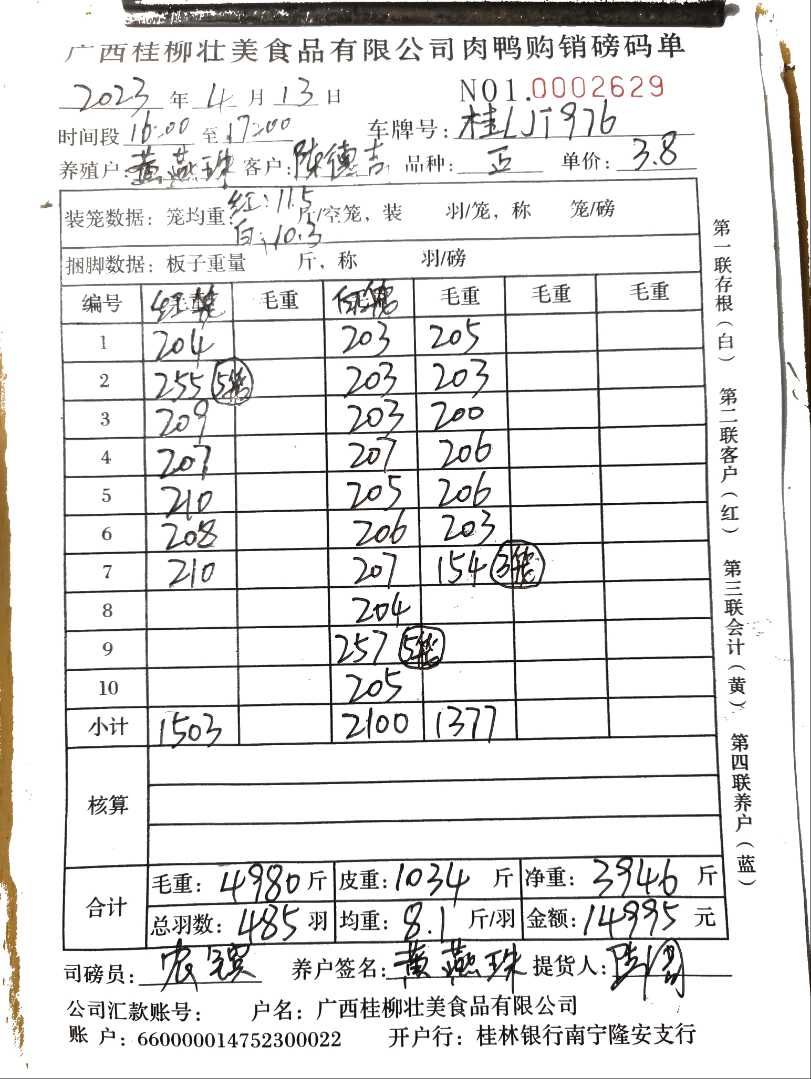 广西桂柳壮美食品有限公司肉鸭购销磅码单
2023 年 4 月 13 日 NO1.0002629
时间段 16:00 至 17:00 车牌号: 桂LJT976
养殖户: 黄燕珠 客户: 陈德吉 品种: 正 单价: 3.8
红: 11.5
装笼数据: 笼均重: 斤/空笼, 装 羽/笼, 称 笼/磅
白: 10.3
捆脚数据: 板子重量 斤, 称 羽/磅
编号 红笼 毛重 白笼 毛重 毛重 毛重
1 204 203 205
2 255 5笼 203 203
3 209 203 200
4 207 207 206
5 210 205 206
6 208 206 203
7 210 207 154 3笼
8 204
9 257 5笼
10 205
小计 1503 2100 1377
核算
合计 毛重: 4980 斤 皮重: 1034 斤 净重: 3946 斤
总羽数: 485 羽 均重: 8.1 斤/羽 金额: 14995 元
司磅员: 农宾 养户签名: 黄燕珠 提货人:
公司汇款账号: 户名: 广西桂柳壮美食品有限公司
账 户: 660000014752300022 开户行: 桂林银行南宁隆安支行
第一联存根(白) 第二联客户(红) 第三联会计(黄) 第四联养户(蓝)